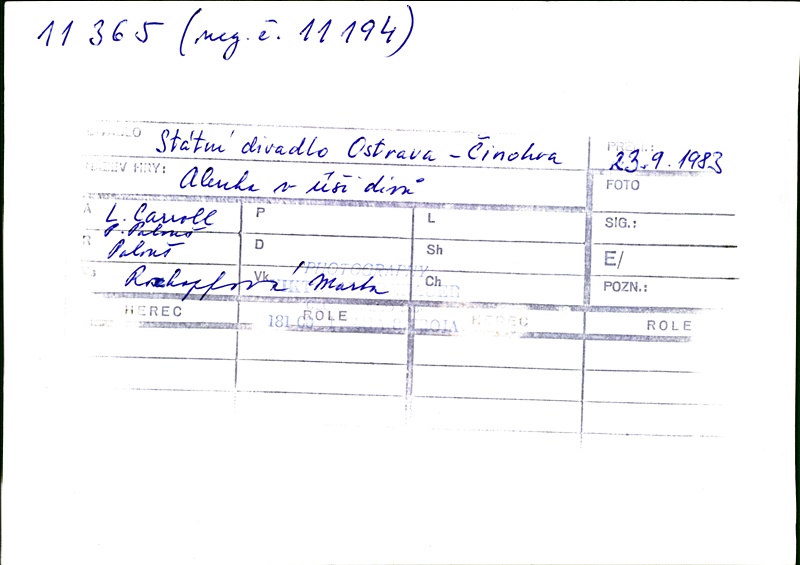 11 365 (neg. č. 11 194)
Státní divadlo Ostrava – Činohra
23.9.1983
Alenka v říši divů
FOTO
A L. Carroll P L SIG.:
P. Palouš
R Palouš D Sh E/
Marta Vk Ch POZN.:
PHOTOGRAPHY
HEREC ROLE HEREC ROLE
181 00